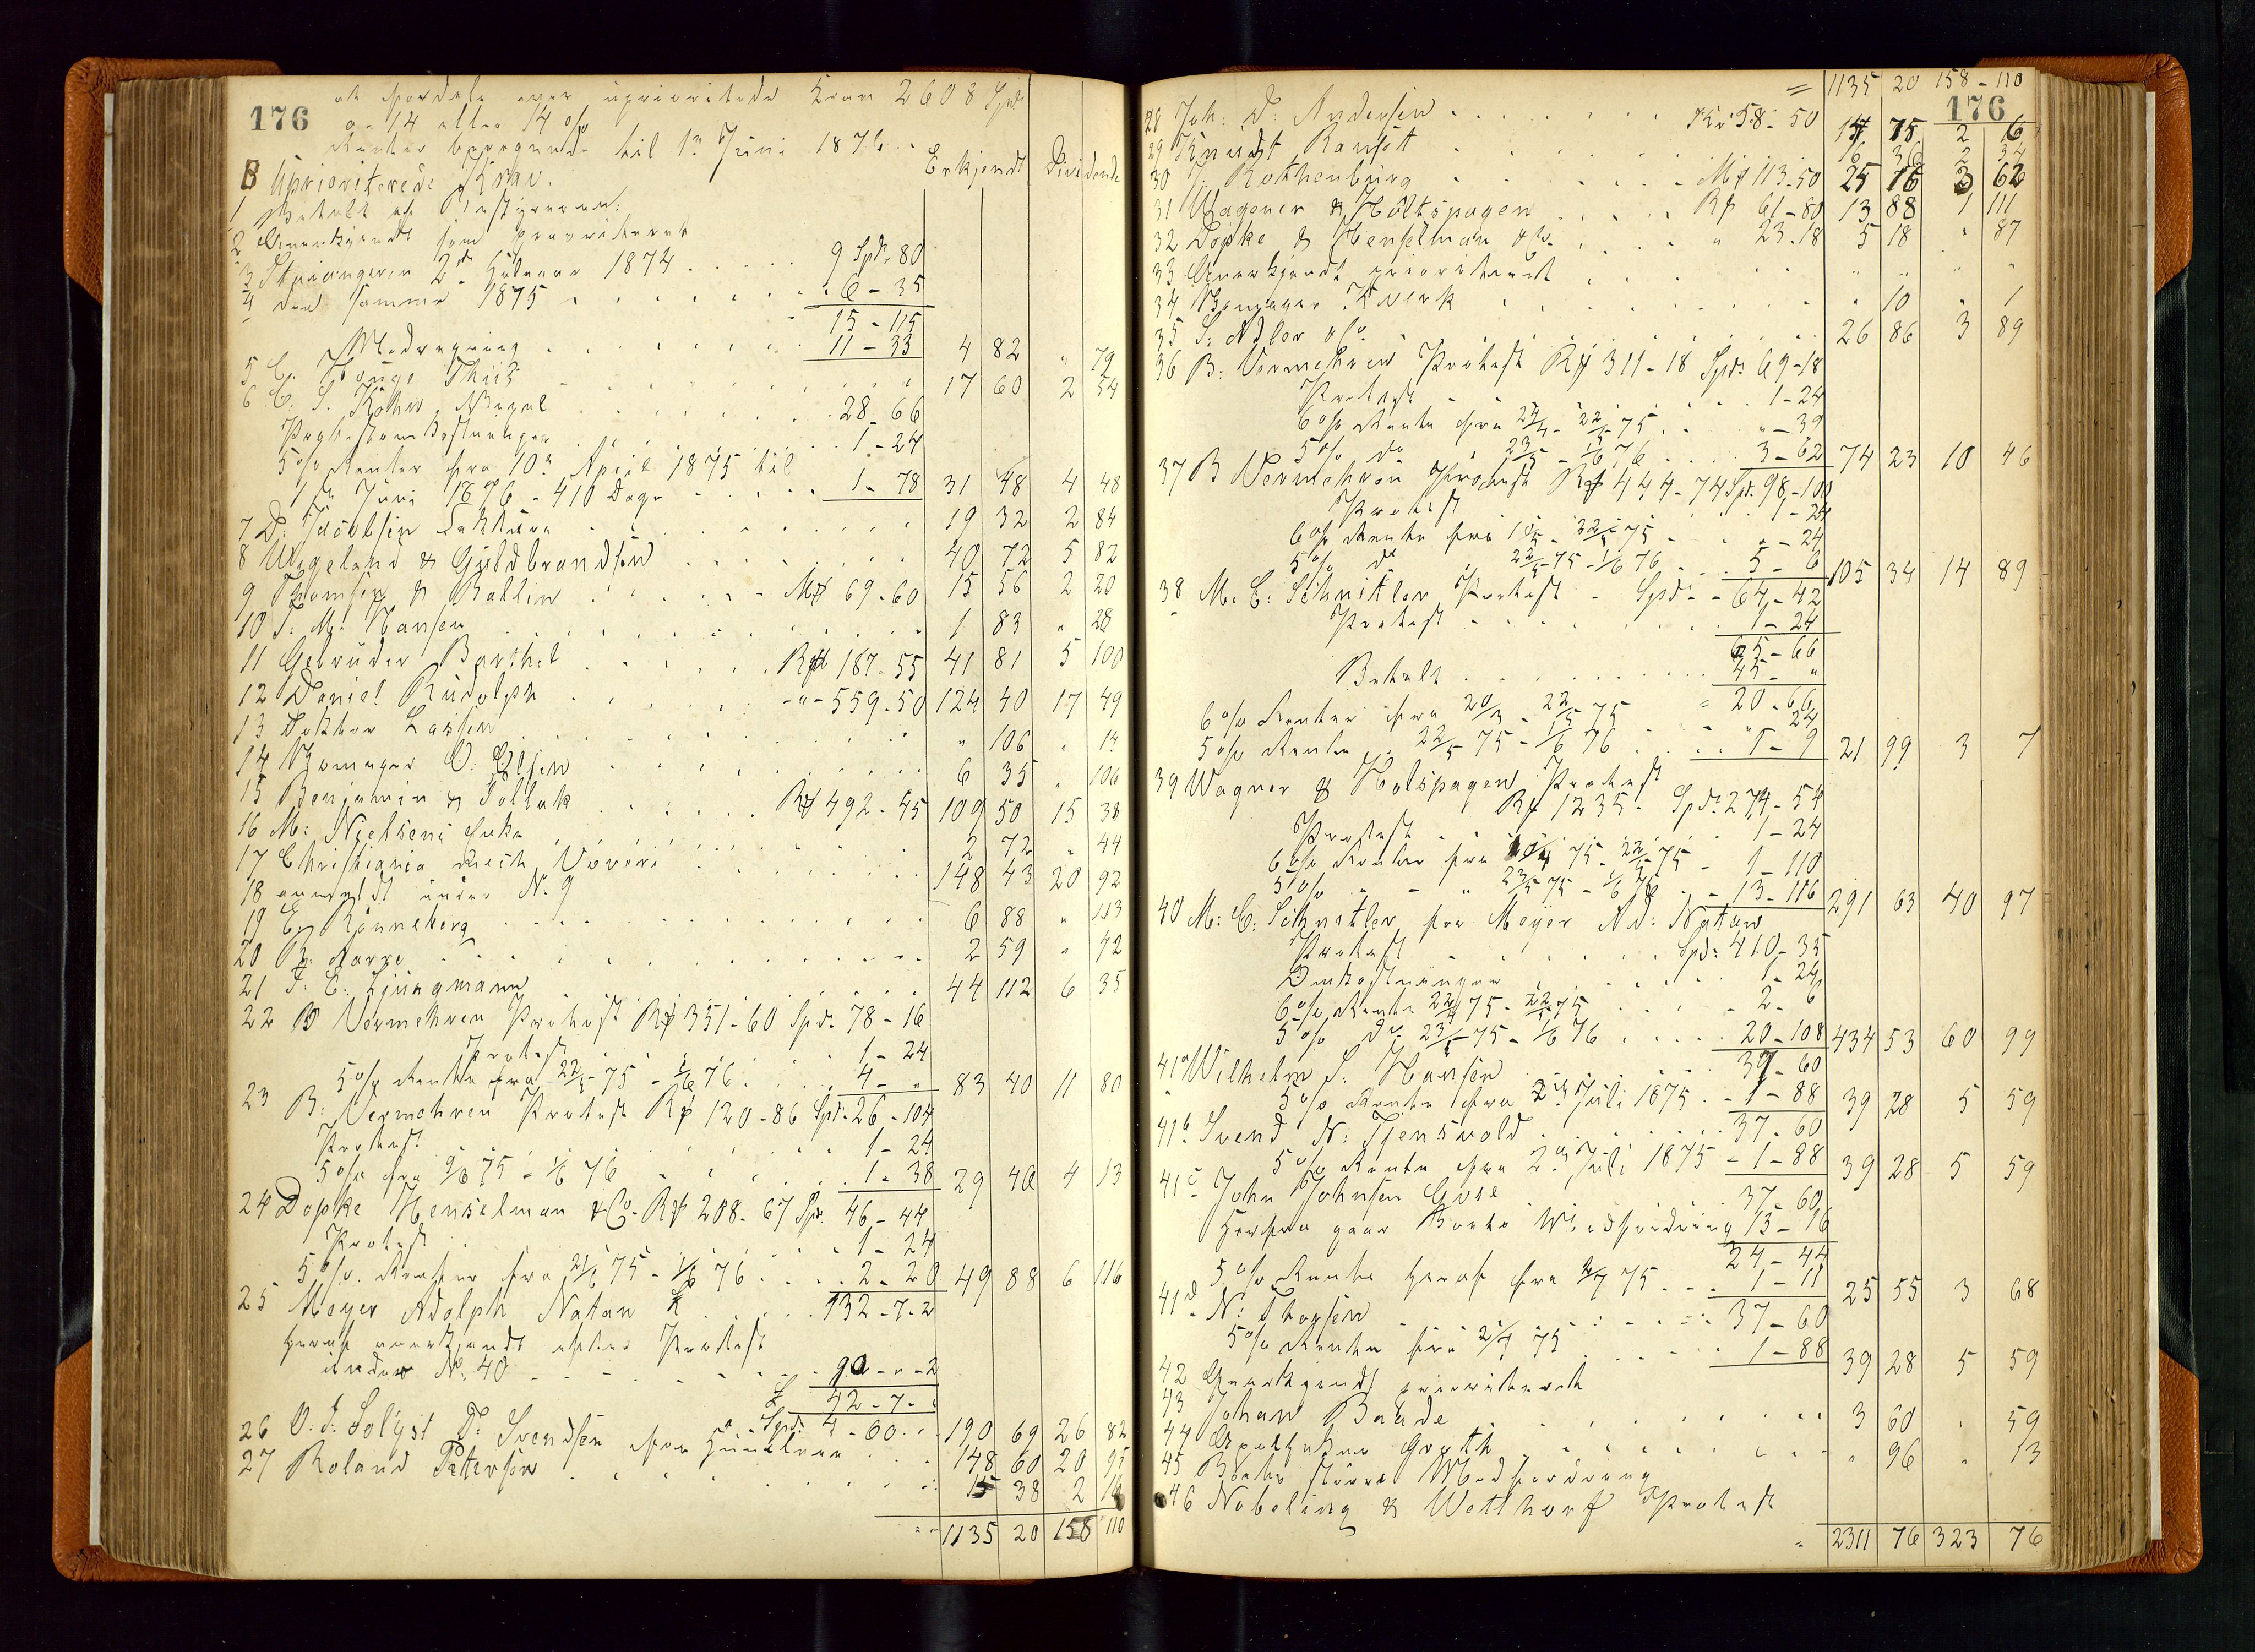 176
at fordele over uprioriterede Krav 2608 Spd.
a 14 eller 14 o/o
Renter beregnede til 1ste Juni 1876.
Erkjendt Dividende
B Uprioriterede Krav.
1 Betalt af Bestyreren.
2 Anerkjendt som prioriteret
3 2det Halvaar 1874 . . . 9 Spd. 80
4 den samme 1875 . . . 6 - 35
15 - 115
Modregning . . . 11 - 33 4 82 " 79
5 C. Houge Thiis . . . 17 60 2 54
6 C. S. Kohn, . . . 28 - 66
1 - 24
5 o/o Renter fra 10de April 1875 til
1ste Juni 1876 - 410 Dage . . . 1 - 78 31 48 4 48
7 D. Jacobsen . . . 19 32 2 84
8 Wigeland & Guldbrandsen . . . 40 72 5 82
9 Thomsen & Ballin . . . M₰ 69-60 15 56 2 20
10 T. M. Hansen . . . 1 83 " 28
11 Gebruder Barthel . . . R₰ 187-55 41 81 5 100
12 Daniel Rudolph . . . -"- 559-50 124 40 17 49
13 Doktor Lassen . . . " 106 " 14
14 O. Olsen . . . 6 35 " 106
15 Benjamin & Pollak . . . R₰ 492-45 109 50 15 38
16 M. Nielsens Enke . . . 2 72 " 44
17 Christiania . . . 148 43 20 92
18 anmeldt under No 9
19 E. Rønneberg . . . 6 88 " 113
20 . . . 2 59 " 42
21 F. E. Ljungmann . . . 44 112 6 35
22 B Vermehren Protest R₰ 351-60 Spd. 78 - 16
Protest . . . 1 - 24
5 o/o Rente fra 22/5 75 - 1/6 76 . . . 4 - " 83 40 11 80
23 B. Vermehren Protest R₰ 120-86 Spd. 26 - 104
Protest . . . 1 - 24
5 o/o fra 9/8 75 - 1/6 76 . . . 1 - 38 29 46 4 13
24 Dopke Henselman & Co. R₰ 208-67 Spd. 46 - 44
Protest . . . 1 - 24
5 o/o Renter fra 21/6 75 - 1/6 76 . . . 2 - 20 49 88 6 116
25 Meyer Adolph Natan £ . . . 132 - 7 - 2
Heraf anerkjendt efter Protest
under No. 40 . . . 90 - " - 2
£ 42 - 7 - "
a Spd. 4 - 60 . . 190 69 26 82
26 O. J. Solgst D. Svendsen for . . . 148 60 20 95
27 Roland Petterson . . . 15 38 2 16
1135 20 158 110
= 1135 20 158 - 110
176
28 Joh. D. Andersen . . . Kr. 58-50 14 75 2 6
29 Knudt Ranfót . . . 16 36 2 34
30 J. Rothenburg . . . M₰ 113-50 25 16 3 62
31 Wagener & Holtspagen . . . R₰ 61-80 13 88 1 111
32 Dopke & Henselman & Co. . . . " 23-18 5 18 " 87
33 Anerkjendt prioriteret . . . " " " "
34 Kverk . . . " 10 " 1
35 S. Adler & Co. . . . 26 86 3 89
36 B. Vermehren Protest R₰ 311-18 Spd. 69-18
Protest . . . 1-24
6 o/o Rente fra 24/4 - 22/5 75 . . . " - 39
5 o/o do 23/5 - 1/6 76 . . . 3 - 62 74 23 10 46
37 B Vermehren Protest R₰ 444-74 Spd. 98-100
Protest 1 - 24
6 o/o Rente fra 10/5 - 22/5 75 - " - 24
5 o/o do 22/5 75 - 1/6 76 . . . 5 - 6 105 34 14 89
38 M. C. Schnitler Protest - Spd. - 64 - 42
Protest . . . 1 - 24
65 - 66
Betalt . . . 45 - "
= 20 - 66
6 o/o Renter fra 20/3 - 22/5 75 " 24
5 o/o Rente " 22/5 75 - 1/6 76 . . . 1 - 9 21 99 3 7
39 Wagner & Holspagen Protest
R₰ 1235 - Spd. 274 - 54
Protest . . . 1 - 24
6 o/o Renter fra 10/4 75 - 22/5 75 - 1 - 110
5 o/o " - " 23/5 75 - 1/6 76 - 13 - 116 291 63 40 97
40 M. C. Schnitler for Meyer Ad. Natan
Protest . . . Spd. 410 - 35
Omkostninger . . . 1 - 24
6 o/o Rente 22/4 75 - 22/5 75 . . . 2 - 6
5 o/o do 23/5 75 - 1/6 76 . . . 20 - 108 434 53 60 99
41a Wilhelm S. Hansen . . . 37 - 60
5 o/o Rente fra 2den Juli 1875 . - 1 - 88 39 28 5 59
41b Svend N. Tjensvold . . . 37 - 60
5 o/o Rente fra 2den Juli 1875 - 1 - 88 39 28 5 59
41c John Johnsen . . . 37 - 60
Herfra gaar Boets Modfordring 13 - 16
24 - 44
5 o/o Rente heraf fra 2/7 75 . . . 1 - 11 25 55 3 68
41d N. Thorsen . . . 37 - 60
5 o/o Rente fra 2/7 75 . . . 1 - 88 39 28 5 59
42 Anerkjendt prioriteret
43 Johan Baade . . . 3 60 " 59
44 Apotheker Greth . . . " 96 " 13
45 Boets større Modfordring
46 Nobeling & Wetthorf Protest
2311 76 323 76